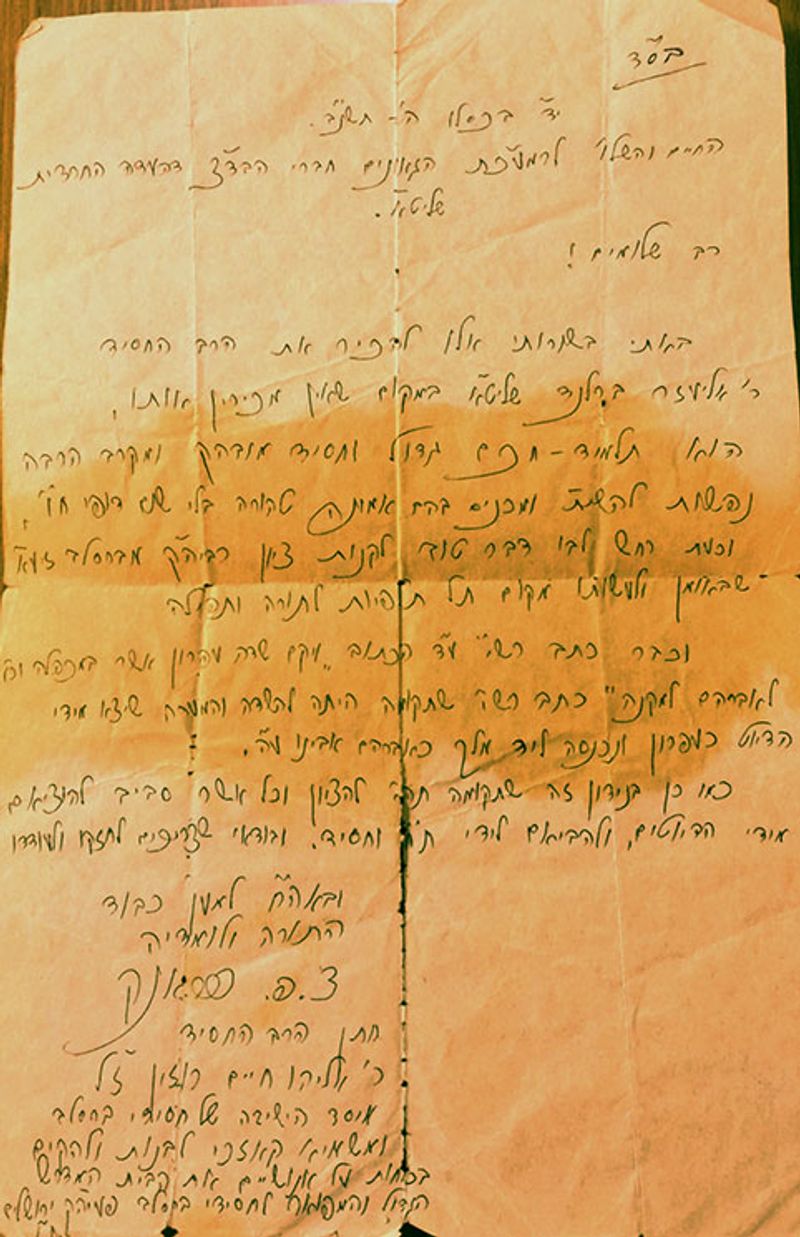 בס"ד
יד בכסלו ה'- תשנ"ב.
החיים והשלו' למערכת הגאונים חברי הבד"צ דהעדה החרדית
שליט"א.
רב שלומים !
באתי בשורותי אלו להכיר את הרב החסיד
ר' אליעזר ברלנד שליט"א במקום שאין מכירין אותו,
הוא תלמיד-חכם גדול וחסיד מובהק ומקרב הרבה
נפשות להשי"ת ומכניס בהם אמונה טהורה בלי שום דופי ח"ו,
וכעת רחש לבו דבר טוב לקנות ציון רביה"ק מברסלב זיע"א
שבאומן ולעשותו מקום תל תלפיות לתורה ותפלה
וכבר כתב רש"י עה"כ הכתוב "ויקם שדה עפרון אשר במכפלה וכו'
לאברהם למקנה" כתב רש"י שתקומה היתה להשדה והמערה שיצא מידי
הדיוט כעפרון ונכנסה ליד מלך כאברהם אבינו ע"ה.
כמו כן בנידון זה שתקומה תהי' להציון וכל אשר סביב להוציאם
מידי הדיוטים, ולהביאם לידי ת"ח וחסיד. ובודאי שצריכים לחזקו ולעודדו
ובאה"ח למען כבוד
התורה ולומדיה
צ.פ. פראנק
חתן הרב החסיד
ר' אליהו חיים רוזין ז"ל
מיסד הישיבה של חסידי ברסלב
לבנות ולהקים
את בית המדרש
הגדול והמפואר לחסידי ברסלב פעיה"ק ירושלים